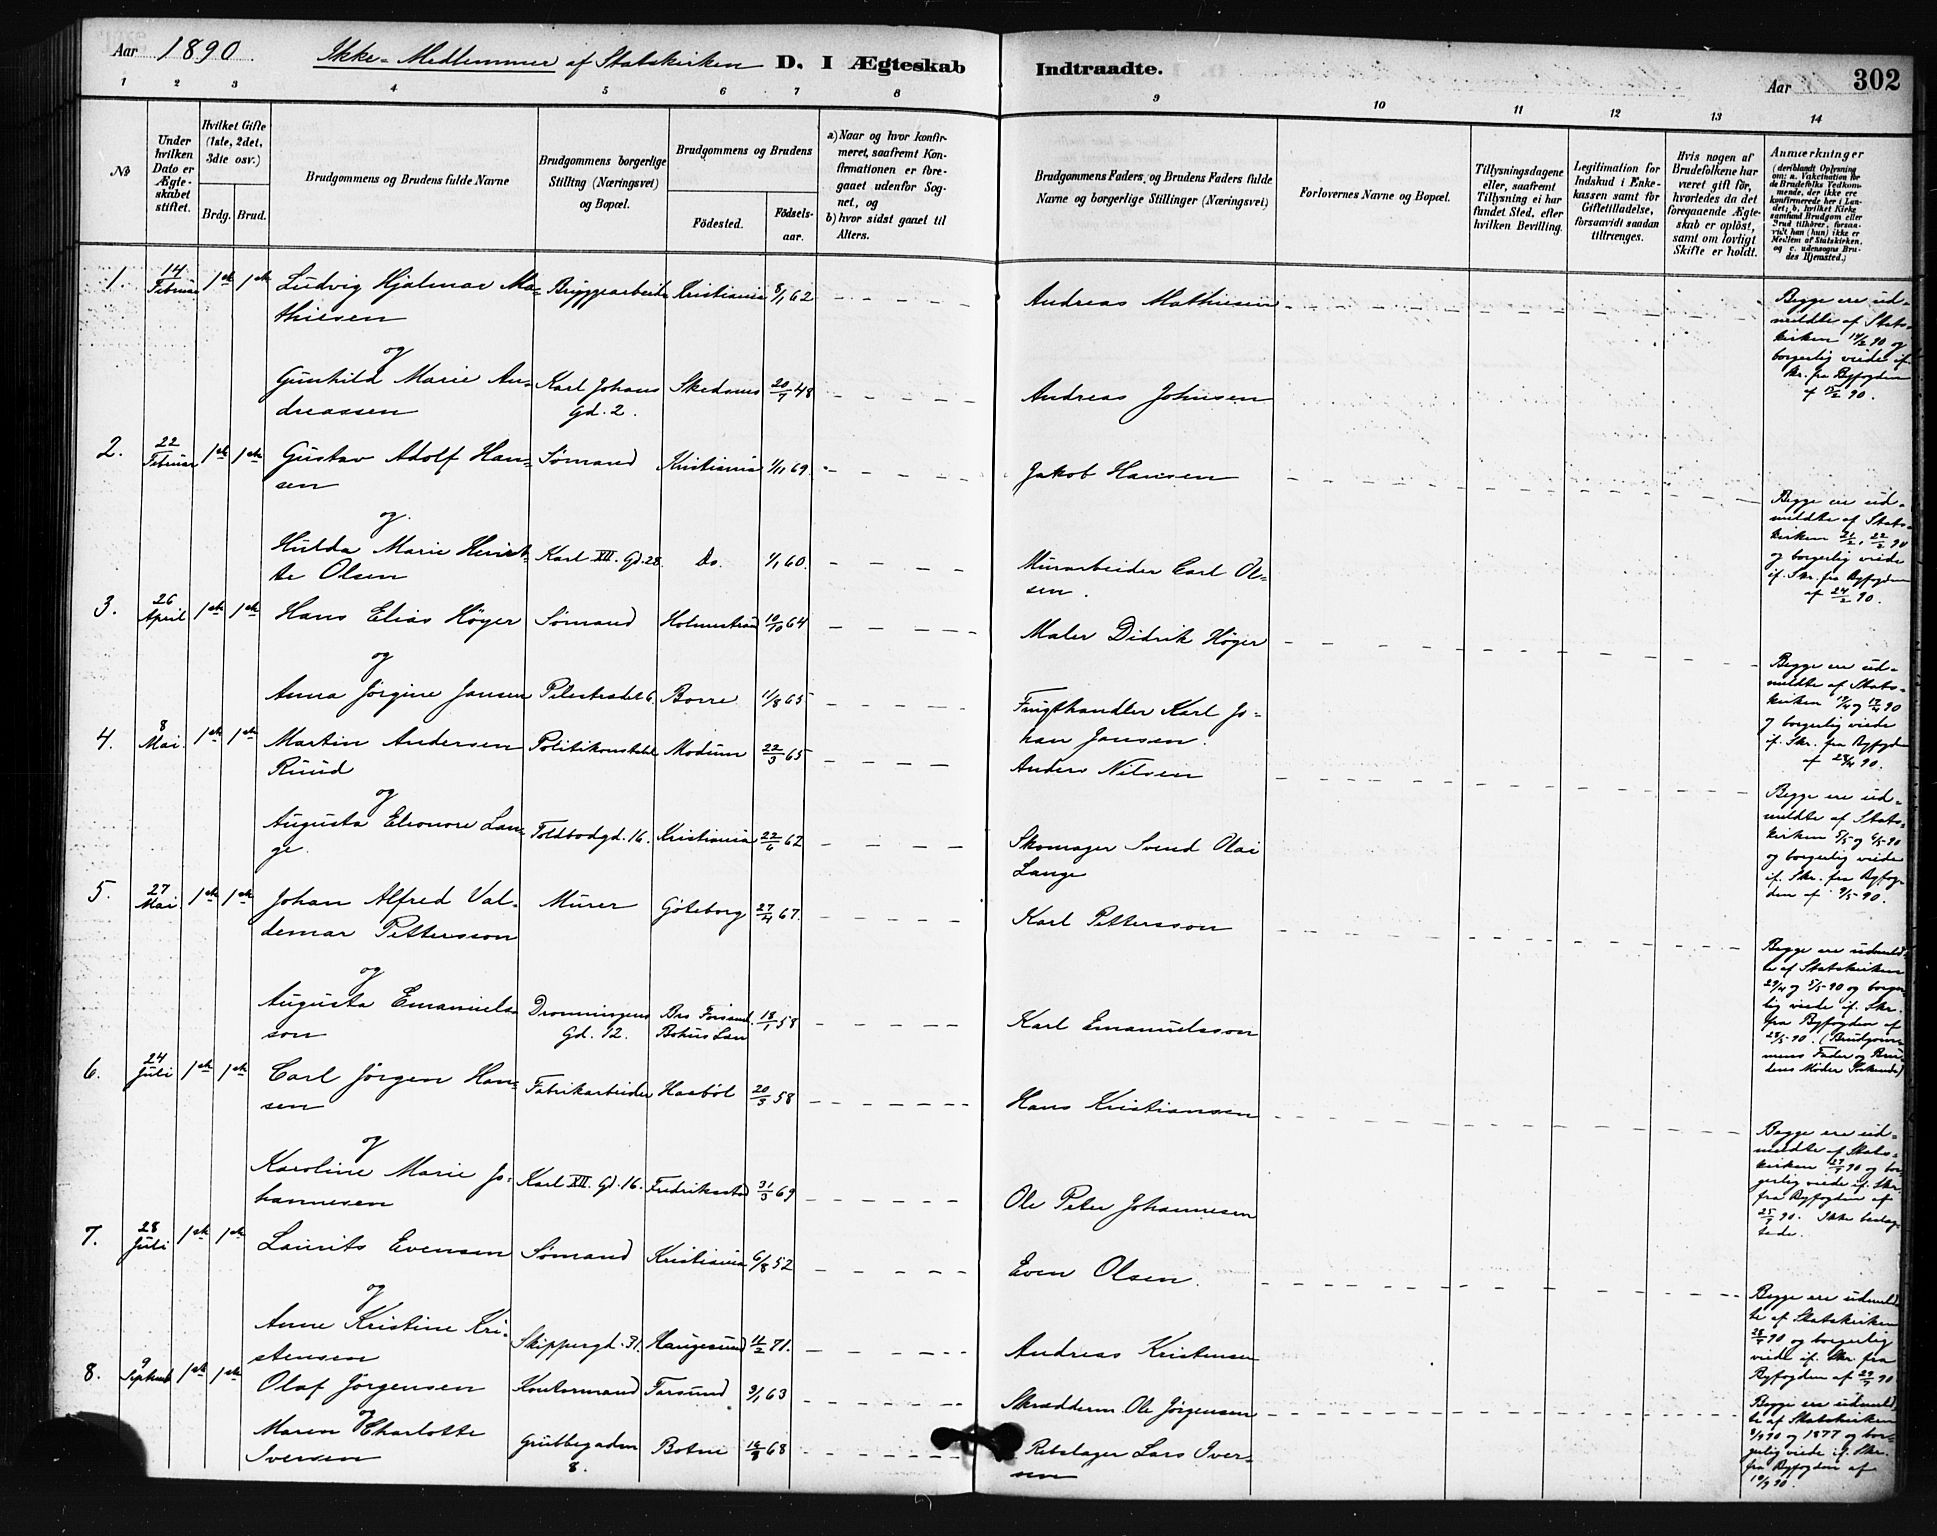 Aar 1890. Ikke-Medlemmer af Statskirken D. I Ægteskab Indtraadte. Aar 302
1 2 3 4 5 6 7 8 9 10 11 12 13 14
No
Under hvilken Dato er Ægteskabet stiftet.
Hvilket Gifte (1ste, 2det, 3die osv.)
Brdg. Brud.
Brudgommens og Brudens fulde Navne
Brudgommens borgerlige Stilling (Næringsvei) og Bopæl.
Brudgommens og Brudens
Födested. Födsels-aar.
a) Naar og hvor konfirmeret, saafremt Konfirmationen er foregaaet udenfor Sognet, og
b) hvor sidst gaaet til Alters.
Brudgommens Faders, og Brudens Faders fulde Navne og borgerlige Stillinger (Næringsvei)
Forlovernes Navne og Bopæl.
Tillysningsdagene eller, saafremt Tillysning ei har fundet Sted, efter hvilken Bevilling.
Legitimation for Indskud i Enkekassen samt for Giftetilladelse, forsaavidt saadan tiltrænges.
Hvis nogen af Brudefolkene har været gift før, hvorledes da det foregaaende Ægteskab er oplöst, samt om lovligt Skifte er holdt.
Anmærkninger
(deriblandt Oplysning om: a. Vakcination for de Brudefolks Vedkommende, der ikke ere konfirmerede her i Landet; b. hvilket Kirkesamfund Brudgom eller Brud tilhører, forsaavidt han (hun) ikke er Medlem af Statskirken, og c. udensogns Brudes Hjemsted.)
1. 14 Februar 1ste 1ste Ludvig Hjalmar Ma-
thiesen
Bryggearbeider Kristiania 8/1 62 Andreas Mathiesen
og
Gunhild Marie An-
dreassen
Karl Johans
Gd. 2.
Skedsmo 20/7 48 Andreas Johnsen
Begge ere ud-
meldte af Stats-
kirken 14/2 90 og
borgerlig viede if.
Skr. fra Byfogden
af 15/2 90.
2. 22 Februar 1ste 1ste Gustav Adolf Han-
sen
Sømand Kristiania 1/11 69. Jakob Hansen
og
Hulda Marie Henriet-
te Olsen
Karl XII. Gd. 28. Do. 1/1 60. Murarbeider Carl Ol-
sen.
Begge ere ud-
meldte af Stats-
kirken 21/2, 22/2 90
og borgerlig viede
if. Skr. fra Byfogden
af 24/2 90.
3. 26 April 1ste 1ste Hans Elias Höyer Sømand Holmestrand 10/10 64 Maler Didrik Höyer
og
Anna Jörgine Jansen Pilestrædet 6. Borre 11/8 65 Frugthandler Karl Jo-
han Jansen.
Begge ere ud-
meldte af Stats-
kirken og 90
og borgerlig viede
if. Skr. fra Byfogden
af 28/4 90.
4. 8 Mai. 1ste 1ste Martin Andersen
Ruud
Politikonstabel Modum 22/3 65 Anders Nilsen
og
Augusta Eleonore Lan-
ge.
Toldbodgd. 16. Kristiania 22/6 62 Skomager Svend Olai
Lange
Begge ere ud-
meldte af Stats-
kirken 5/5 og 6/5 90
og borgerlig viede
if. Skr. fra Byfog-
den af 9/5 90.
5. 27 Mai. 1ste 1ste Johan Alfred Val-
demar Pettersson
Murer Göteborg 27/4 67. Karl Pettersson
og
Augusta Emanuels-
son
Dronningens
Gd. 12.
Bohus Len 18/1 58 Karl Emanuelsson
Begge ere udmeld-
te af Statskirken
29/4 og 5/5 90 og borger-
lig viede if. Skr.
fra Byfogden af
28/5 90. (Brudgom-
mens Fader og Bru-
dens Moder )
6. 24 Juli 1ste 1ste Carl Jörgen Han-
sen
Fabrikarbeider Haaböl 20/3 58 Hans Kristiansen
og
Karoline Marie Jo-
hannesen
Karl XII. Gd. 16. Fredriksstad 31/3 69 Ole Peter Johannesen
Begge ere ud-
meldte af Stats-
kirken 90 og bor-
gerlig viede if. Skr.
fra Byfogden af
25/7 90. Ikke beslæg-
tede.
7. 28 Juli 1ste 1ste Laurits Evensen Sømand Kristiania 6/8 52 Even Olsen.
og
Anne Kristine Kri-
stensen
Skippergd. 31. Haugesund 71. Andreas Kristensen
Begge ere udmeld-
te af Statskirken
28/7 90 og borgerlig
viede if. Skr. fra
Byfogden af 29/7 90
8. 9 Septemb 1ste 1ste Olaf Jörgensen Kontormand Farsund 3/1 63 Skræddermr. Ole Jörgensen
og
Maren Charlotte
Iversen
Grubbegaden
8.
Botne 68 Rebslager Lars Iver-
sen
Begge ere udmeld-
te af Statskirken
8/9 90 og 1877 og bor-
gerlig viede if. Skr.
fra Byfogden af
10/9 90.